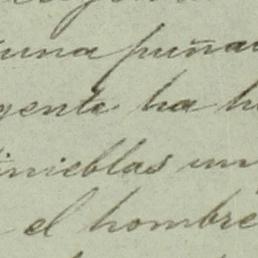 una puña
gente ha h
inieblas un
el hombre